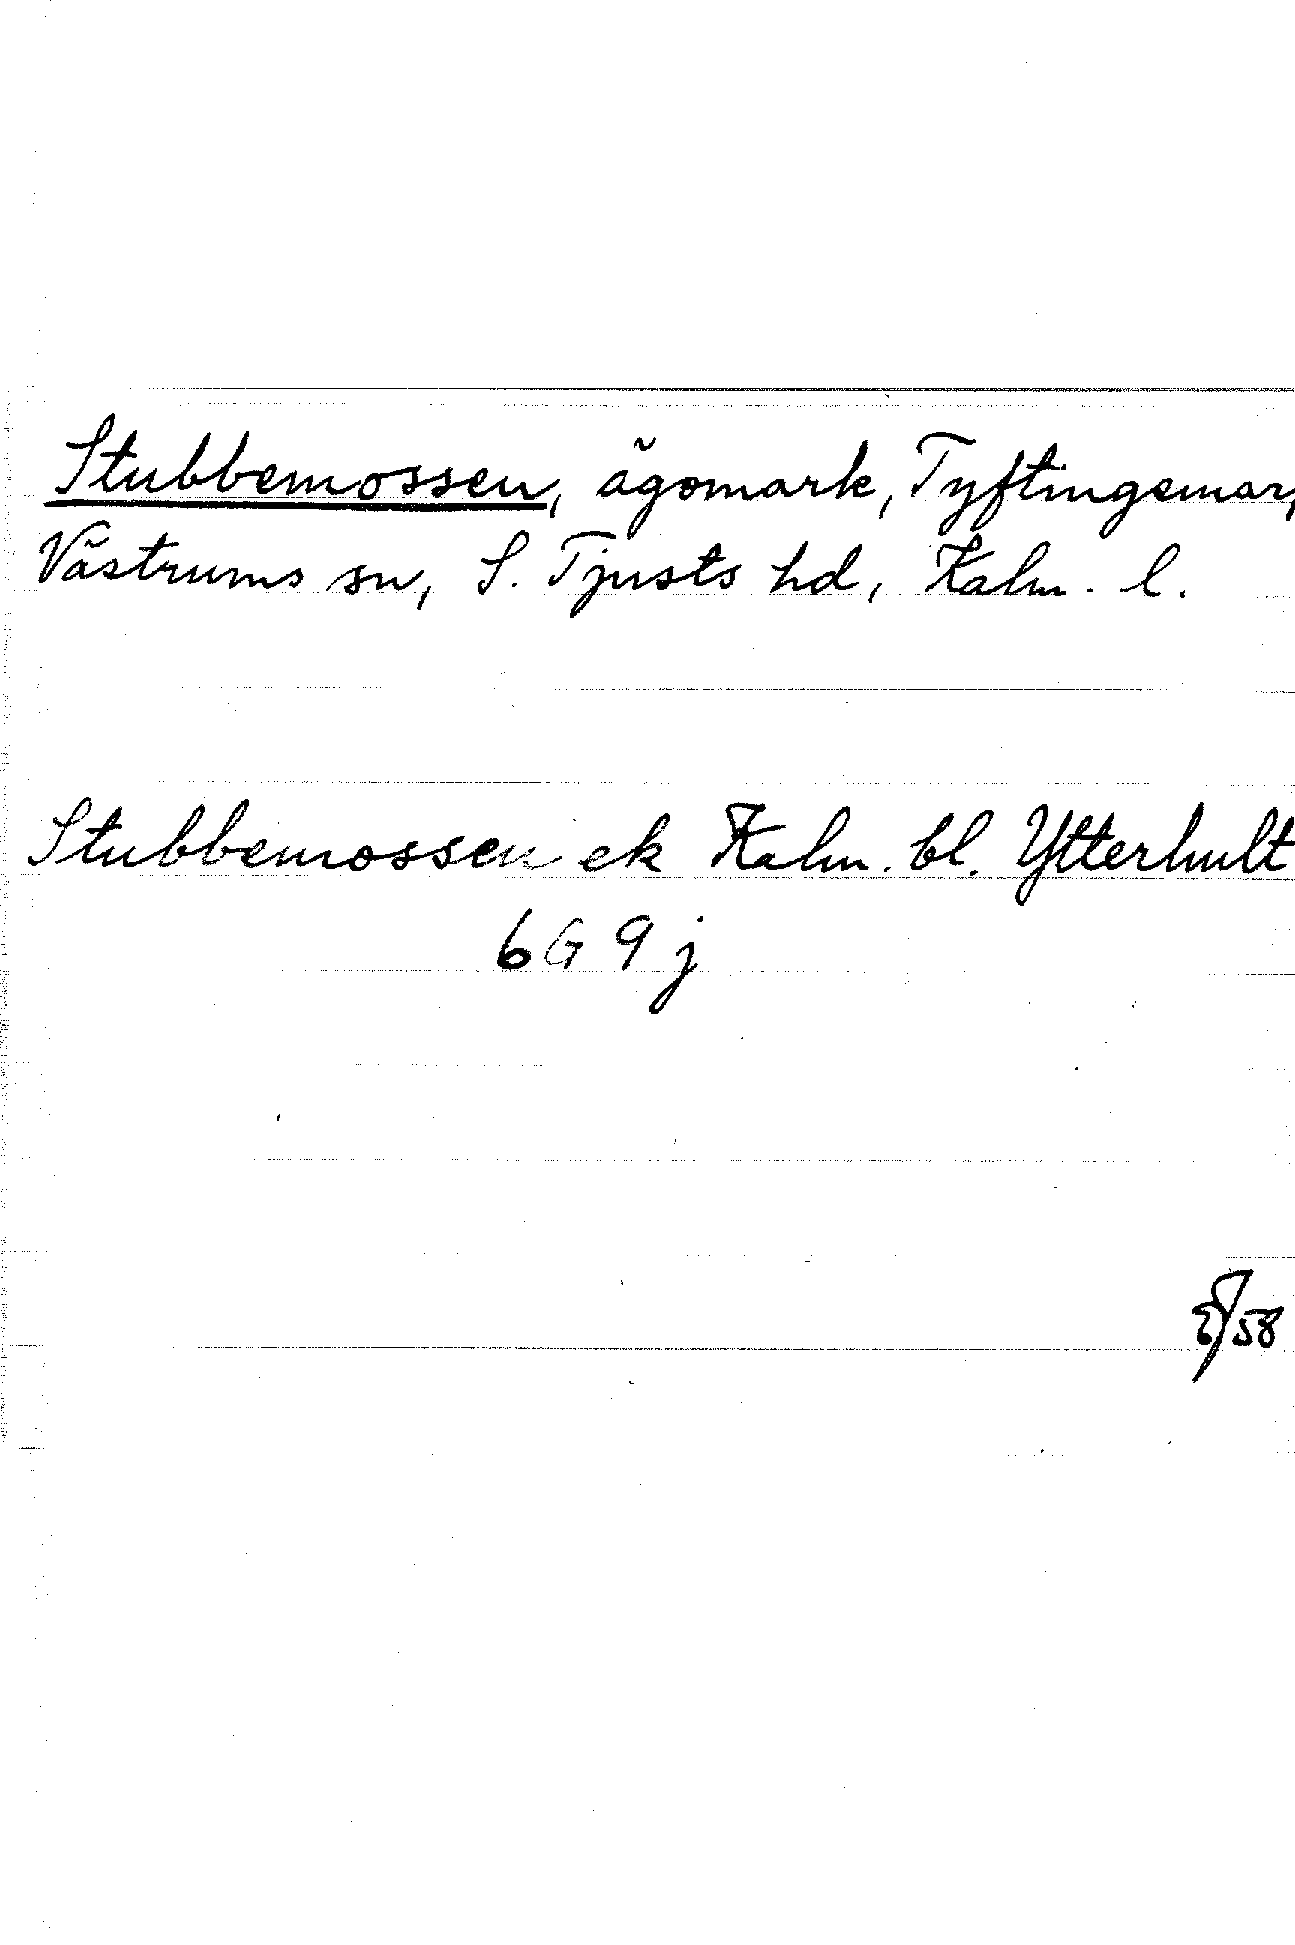 Stubbemossen, ägomark, Tyftingemar,
Västrums sn, S. Tjusts hd, Kalm. l.
Stubbemossen ek Kalm. bl. Ytterhult
6G 9j
58